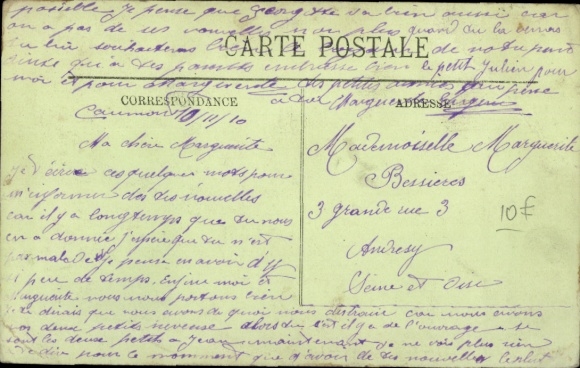 possible je pense que va bien aussi car
on a pas de ses nouvelles non plus quand tu la verras
tu lui souhaiteras de notre part
ainsi qu'a tes parents embrasse bien le petit Julien pour
moi et pour Marguerite
CARTE POSTALE
CORRESPONDANCE
ADRESSE
Caumont 10/11/10
Ma chère Marguerite
Je t'écris ces quelques mots pour
m'informer de tes nouvelles
car il y a longtemps que tu nous
en a donné j'espère que tu n'est
pas malade et je pense en avoir d'ici
peu de temps. Enfin moi et
Marguerite nous nous portons bien
je te dirais que nous avons de quoi nous distraire car nous avons
nos deux petits neveux alors tu sait il y a de l'ouvrage
sont les deux petits a Jean maintenant je ne vois plus rien
a te dire pour le moment que d'avoir de tes nouvelles le plus
Mademoiselle Marguerite
Bessieres
3 grande rue 3
Andresy
Seine et Oise
10€